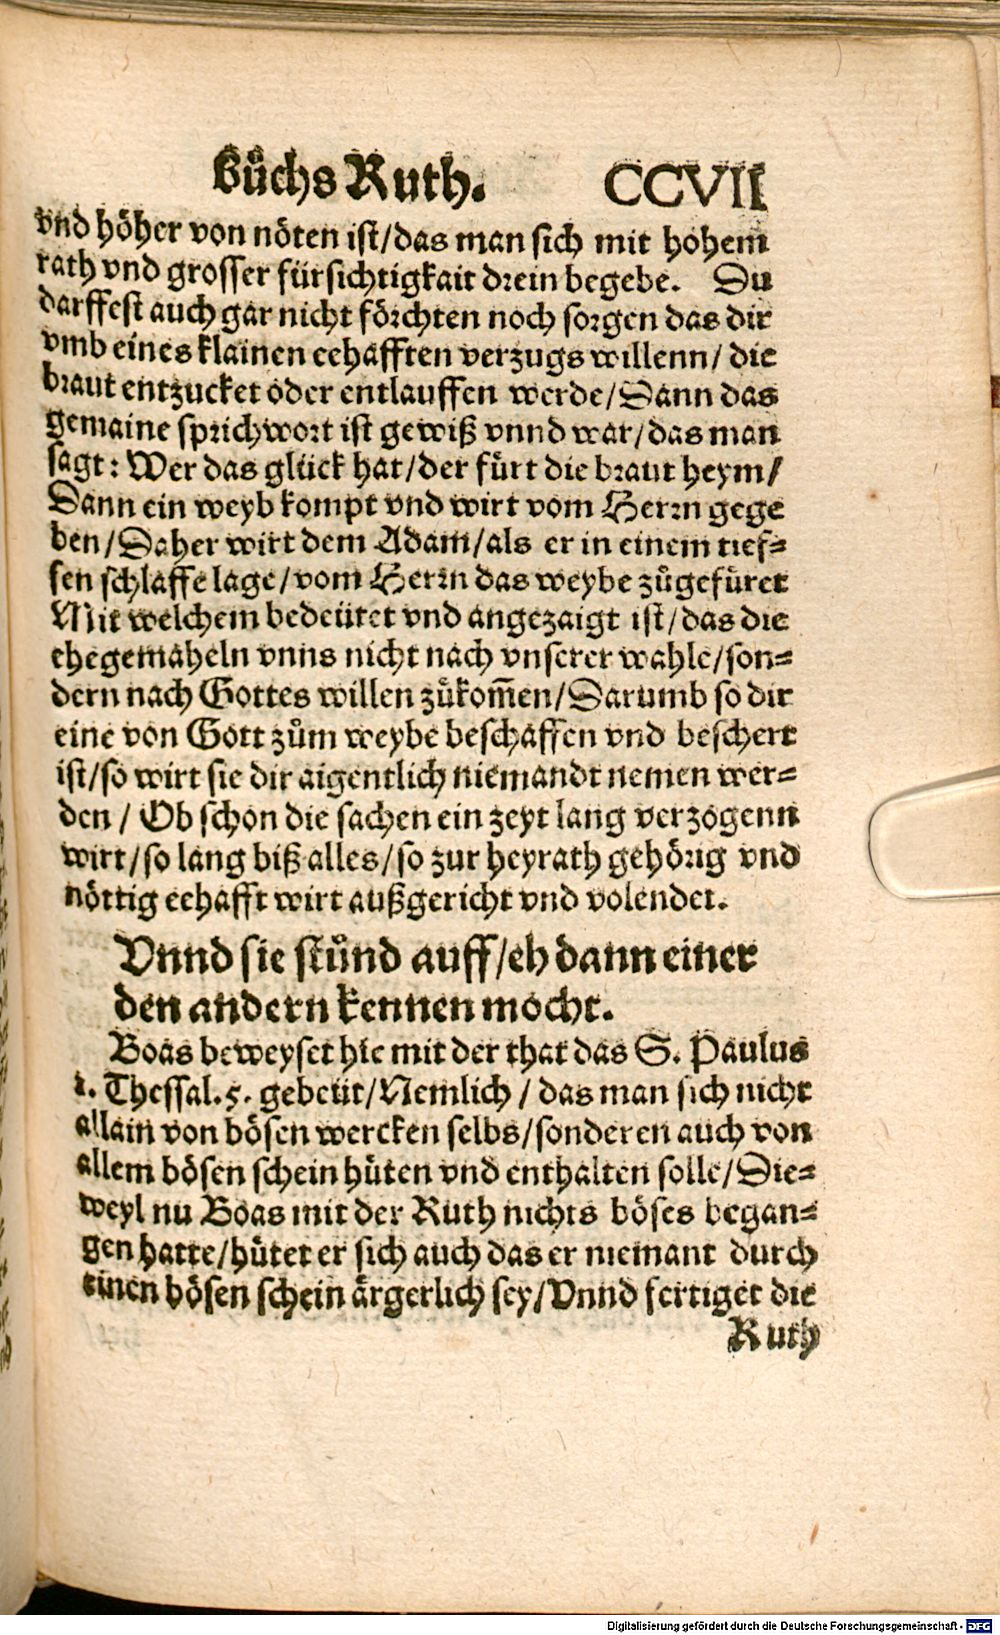 Bůchs Ruth. CCVII
vnd höher von nöten ist/das man sich mit hohem
rath vnd grosser fürsichtigkait drein begebe. Du
darffest auch gar nicht förchten noch sorgen das dir
vmb eines klainen eehafften verzugs willenn/ die
braut entzucket oder entlauffen werde/Dann das
gemaine sprichwort ist gewiß vnnd war/das man
sagt: Wer das glück hat/der fürt die braut heym/
Dann ein weyb kompt vnd wirt vom Herrn gege
ben/Daher wirt dem Adam/als er in einem tief-
fen schlaffe lage/vom Herrn das weybe zůgefüret
Mit welchem bedeütet vnd angezaigt ist/das die
ehegemaheln vnns nicht nach vnserer wahle/son-
dern nach Gottes willen zůkom̄en/Darumb so dir
eine von Gott zům weybe beschaffen vnd beschert
ist/so wirt sie dir aigentlich niemandt nemen wer-
den / Ob schon die sachen ein zeyt lang verzogenn
wirt/so lang biß alles/so zur heyrath gehörig vnd
nöttig eehafft wirt außgericht vnd volendet.
Vnnd sie stůnd auff/eh dann einer
den andern kennen mocht.
Boas beweyset hie mit der that das S. Paulus
1. Thessal.5. gebeüt/Nemlich / das man sich nicht
allain von bösen wercken selbs/sonderen auch von
allem bösen schein hüten vnd enthalten solle/Die-
weyl nu Boas mit der Ruth nichts böses began-
gen hatte/hütet er sich auch das er niemant durch
einen bösen schein ärgerlich sey/Vnnd fertiget die
Ruth
Digitalisierung gefördert durch die Deutsche Forschungsgemeinschaft - DFG